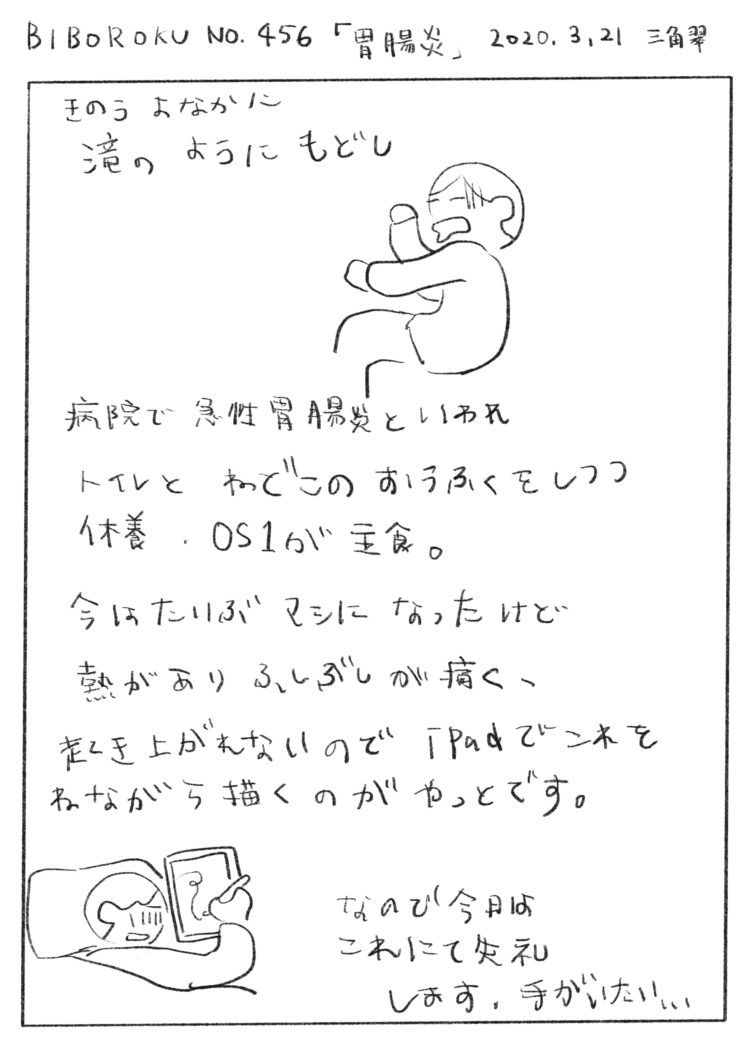 BIBOROKU NO.456「胃腸炎」 2020.3.21 三角翠
きのう よなかに
滝の ように もどし
病院で 急性胃腸炎と いわれ
トイレと ねどこの おうふくをしつつ
休養. OS1が 主食。
今はだいぶ マシに なったけど
熱があり ふしぶしが痛く、
起き上がれないので iPadでこれを
ねながら描くのが やっとです。
なので今日は
これにて失礼
します. 手がいたい…